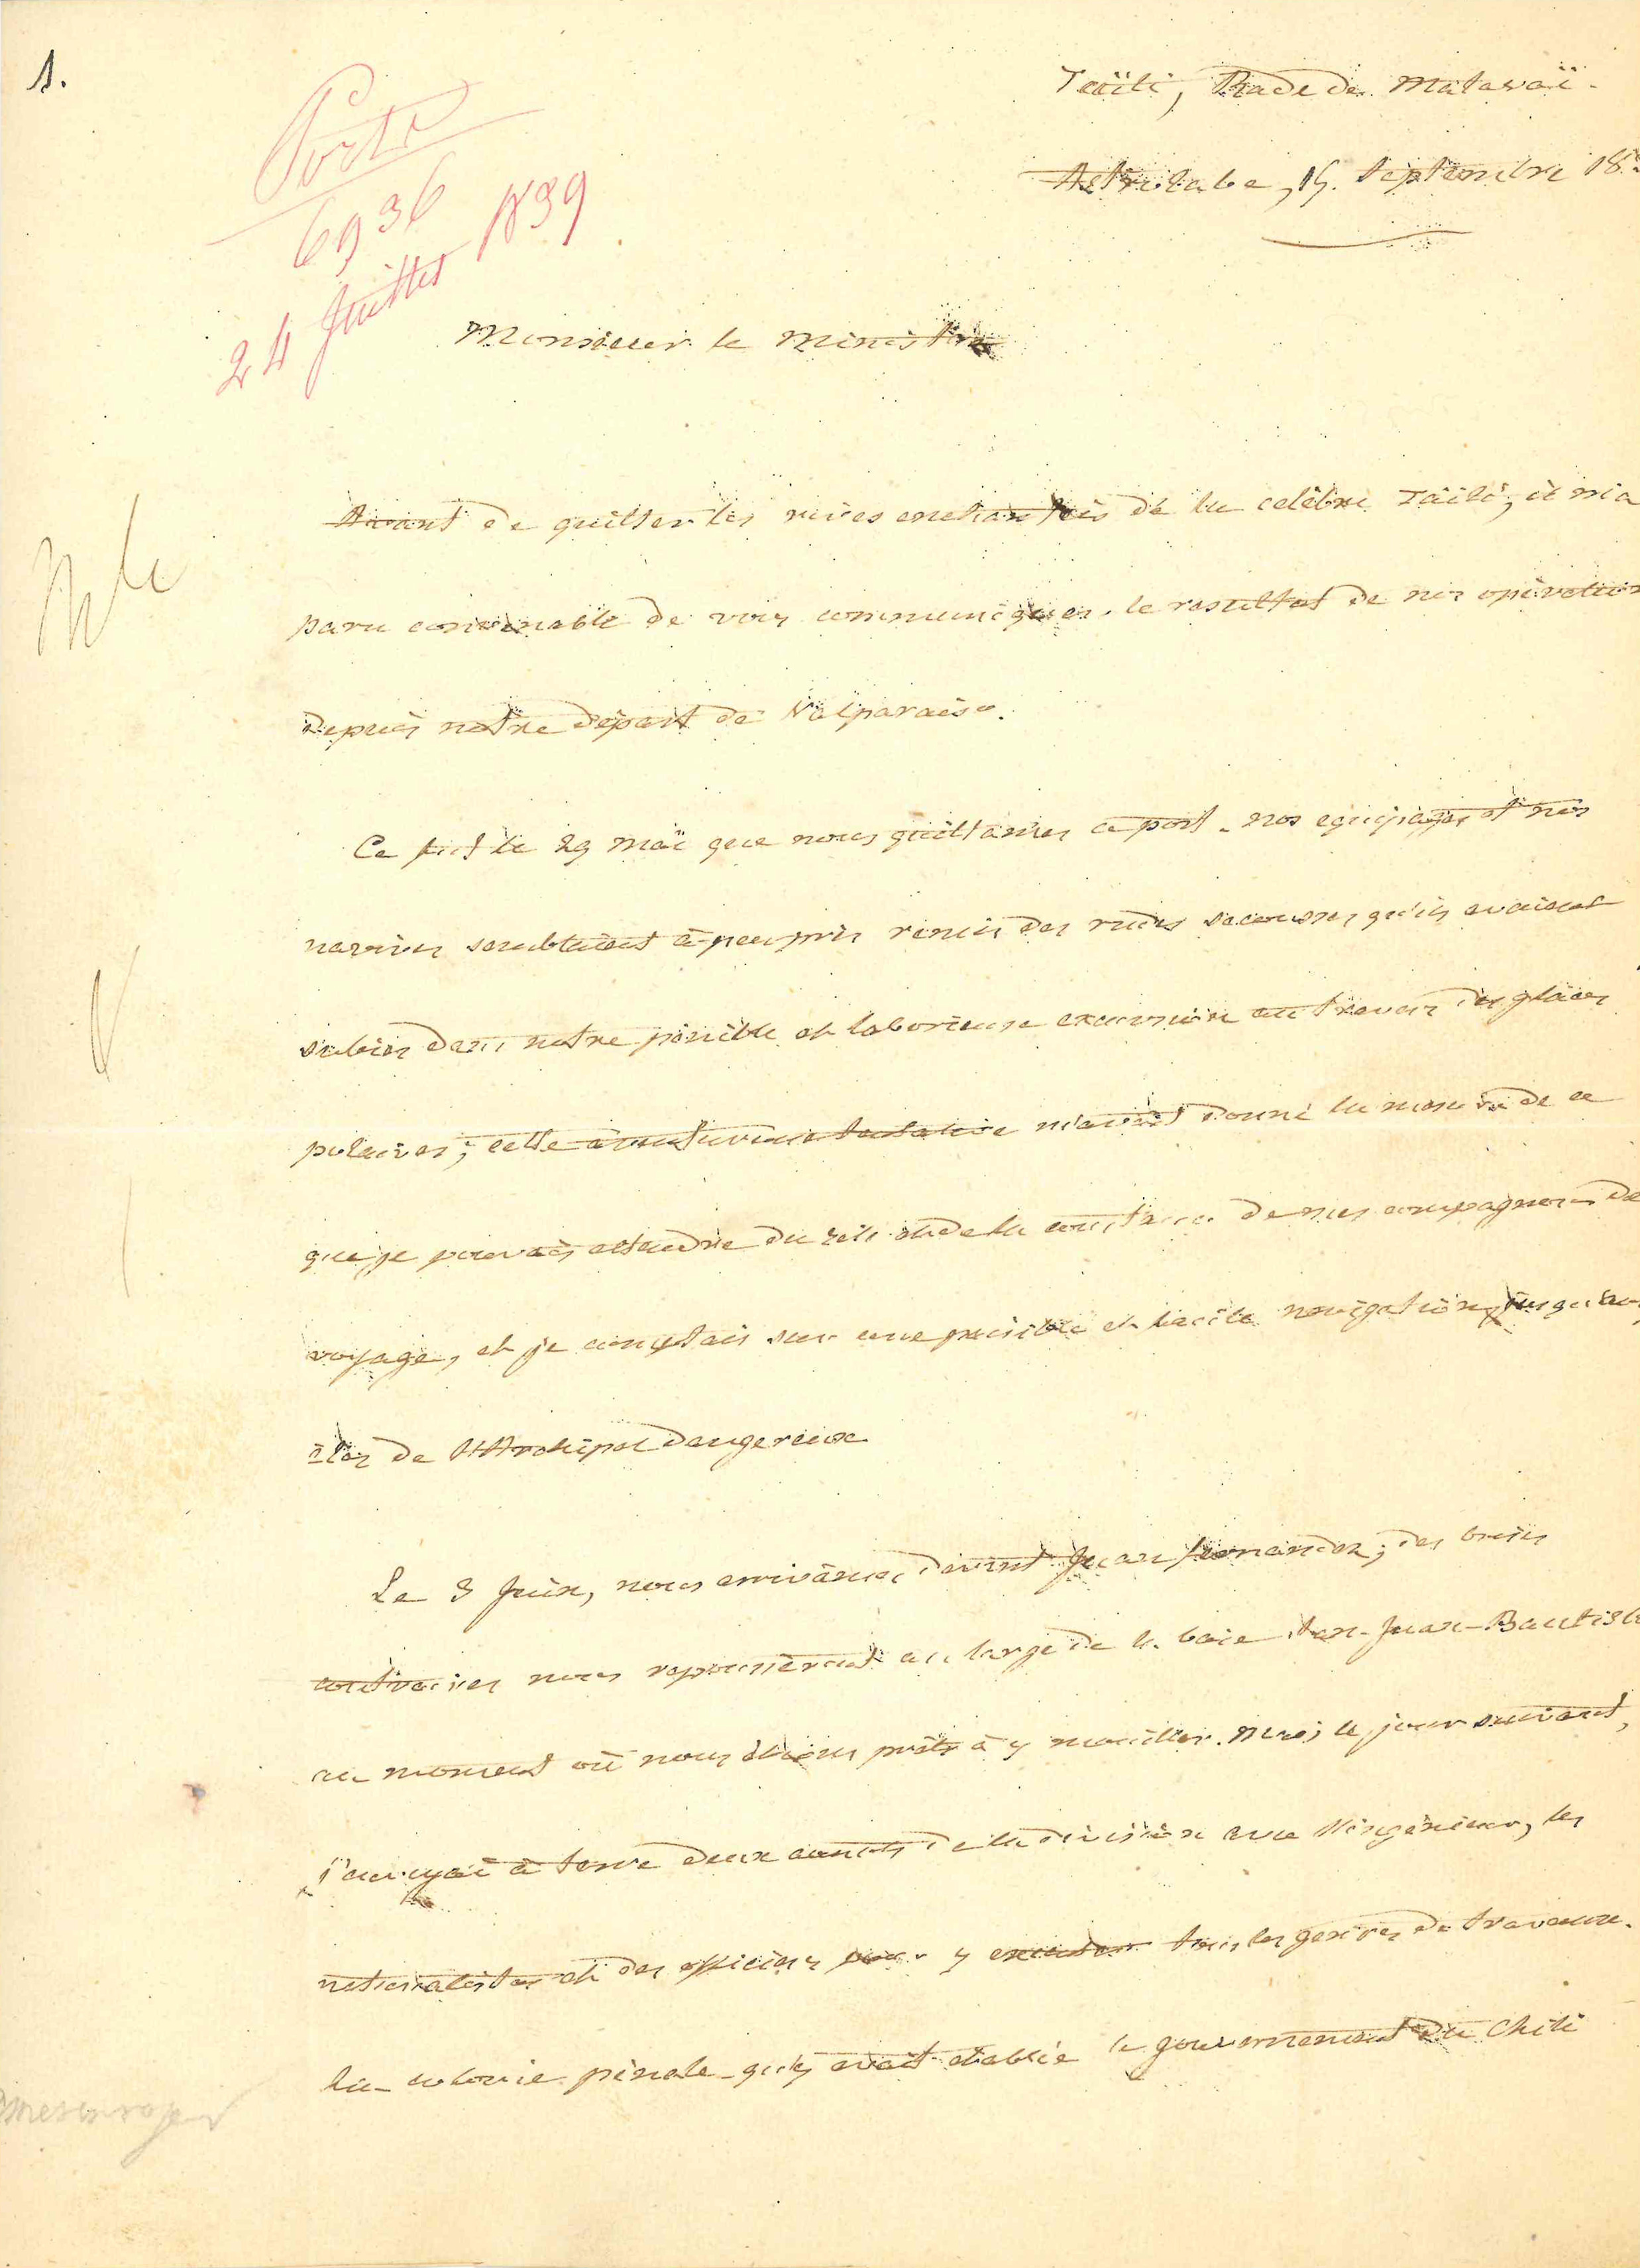 1.
Porté
6936
24 Juillet 1839
Taïti, Rade de Matavaï.
Astrolabe, 15. Septembre 18
Monsieur le Ministre
Avant de quitter les rives enchantées de la celèbre Taïti, il m'a
paru convenable de vous communiquer le resultat de nos opérations
depuis notre départ de Valparaiso.
Ce fut le 29 Maï que nous quittâmes ce port. nos equipages et nos
navires semblaient à-peu-près remis des rudes secousses qu'ils avaient
subies dans notre pénible et laborieuse excursion au travers des glaces
polaires; cette aventureuse tentative m'avait donné la mesure de ce
que je pouvais attendre du zèle et de la constance de mes compagnons de
voyage, et je comptais sur une paisible et facile navigation jusqu'aux
îles de l'Archipel dangereux
Le 3 Juin, nous arrivâmes devant Juan fernandez; des brises
contraires nous repoussèrent au large de la baie San-Juan-Bautista
au moment où nous étions prêts à y mouiller. Mais le jour suivant,
j'envoyai à terre deux canots de la division avec l'ingénieur, les
naturalistes et des officiers pour y executer tous les genres de travaux.
la colonie pénale qu'y avait etablie le gouvernement du Chili